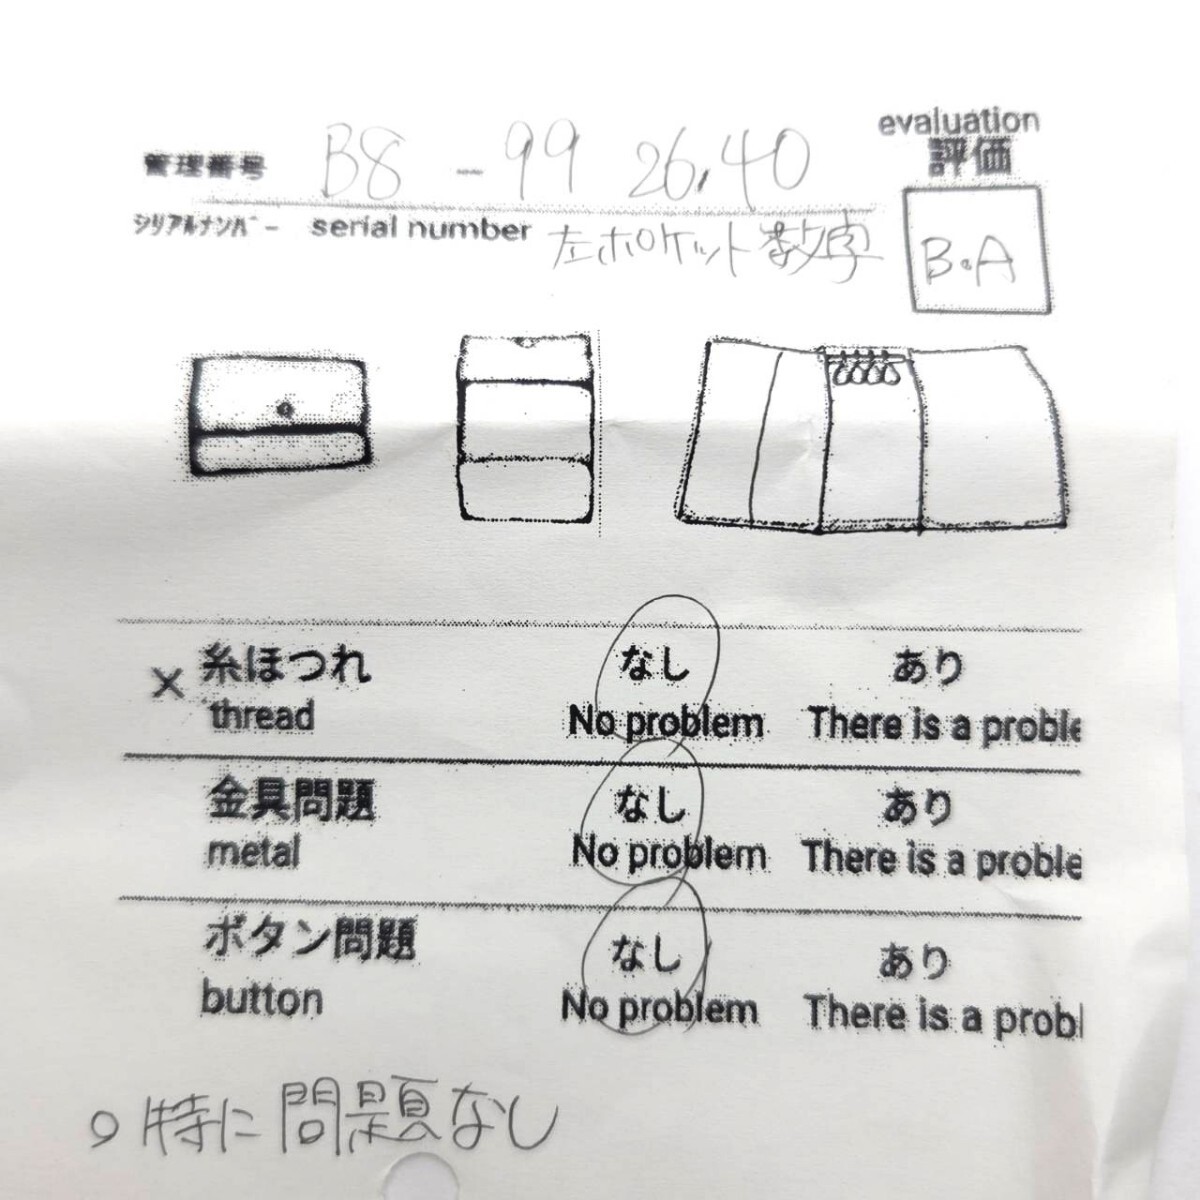 evaluation
評価
管理番号 B8-99 26.40
シリアルナンバー serial number 左ポケット数字
B.A
× 糸ほつれ なし あり
thread No problem There is a proble
金具問題 なし あり
metal No problem There is a proble
ボタン問題 なし あり
button No problem There is a probl
○特に問題なし